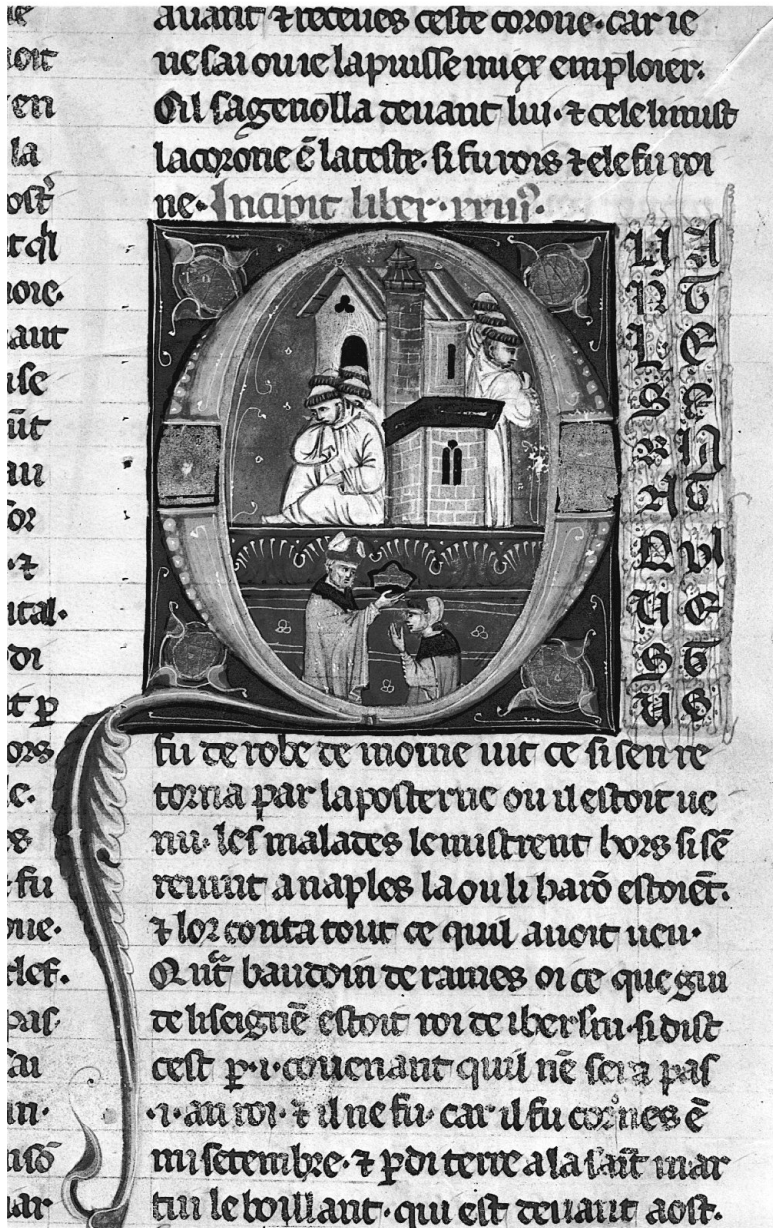 noit
en
la
oie.
aut
ise
ūt
au
sor
⁊
ital.
di
et p
ors
le.
es
fu
oue.
clef.
pas
sai
un.
isō
ar
auant ⁊ receues ceste corone. car ie
ne sai ou ie la puisse miex emploier.
Cil sagenolla deuant lui. ⁊ cele li mist
la corone ē la teste. si fu rois ⁊ ele fu roi
ne. Incipit liber
fu de robe de moine uit ce si sen re
torna par la posterne ou il estoit ue
nu. les malades le mistrent hors si sē
reuint a naples la ou li barō estoiēt.
⁊ lor conta tout ce quil auoit ueu.
Qnt baudoin de rames oi ce que gui
de liseignē estoit roi de iherslm. si dist
cest p .i. couenant quil nē sera pas
.i. an roi. ⁊ il ne fu. car il fu cornes ē
mi setembre. ⁊ pdi terre a la saīt mar
tin le boillant. qui est deuant aost.